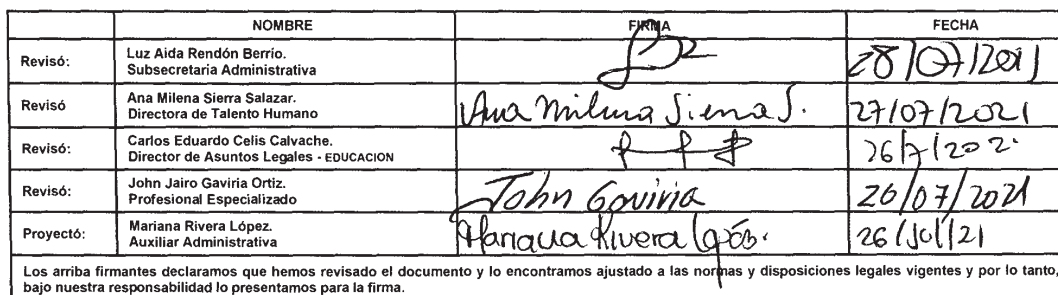 NOMBRE FIRMA FECHA
Revisó: Luz Aida Rendón Berrío.
Subsecretaria Administrativa 28/07/2021
Revisó Ana Milena Sierra Salazar.
Directora de Talento Humano Ana Milena Sierra S. 27/07/2021
Revisó: Carlos Eduardo Celis Calvache.
Director de Asuntos Legales - EDUCACION
Revisó: John Jairo Gaviria Ortiz.
Profesional Especializado John Gaviria 26/07/2021
Proyectó: Mariana Rivera López.
Auxiliar Administrativa Mariana Rivera López. 26/Jul/21
Los arriba firmantes declaramos que hemos revisado el documento y lo encontramos ajustado a las normas y disposiciones legales vigentes y por lo tanto,
bajo nuestra responsabilidad lo presentamos para la firma.